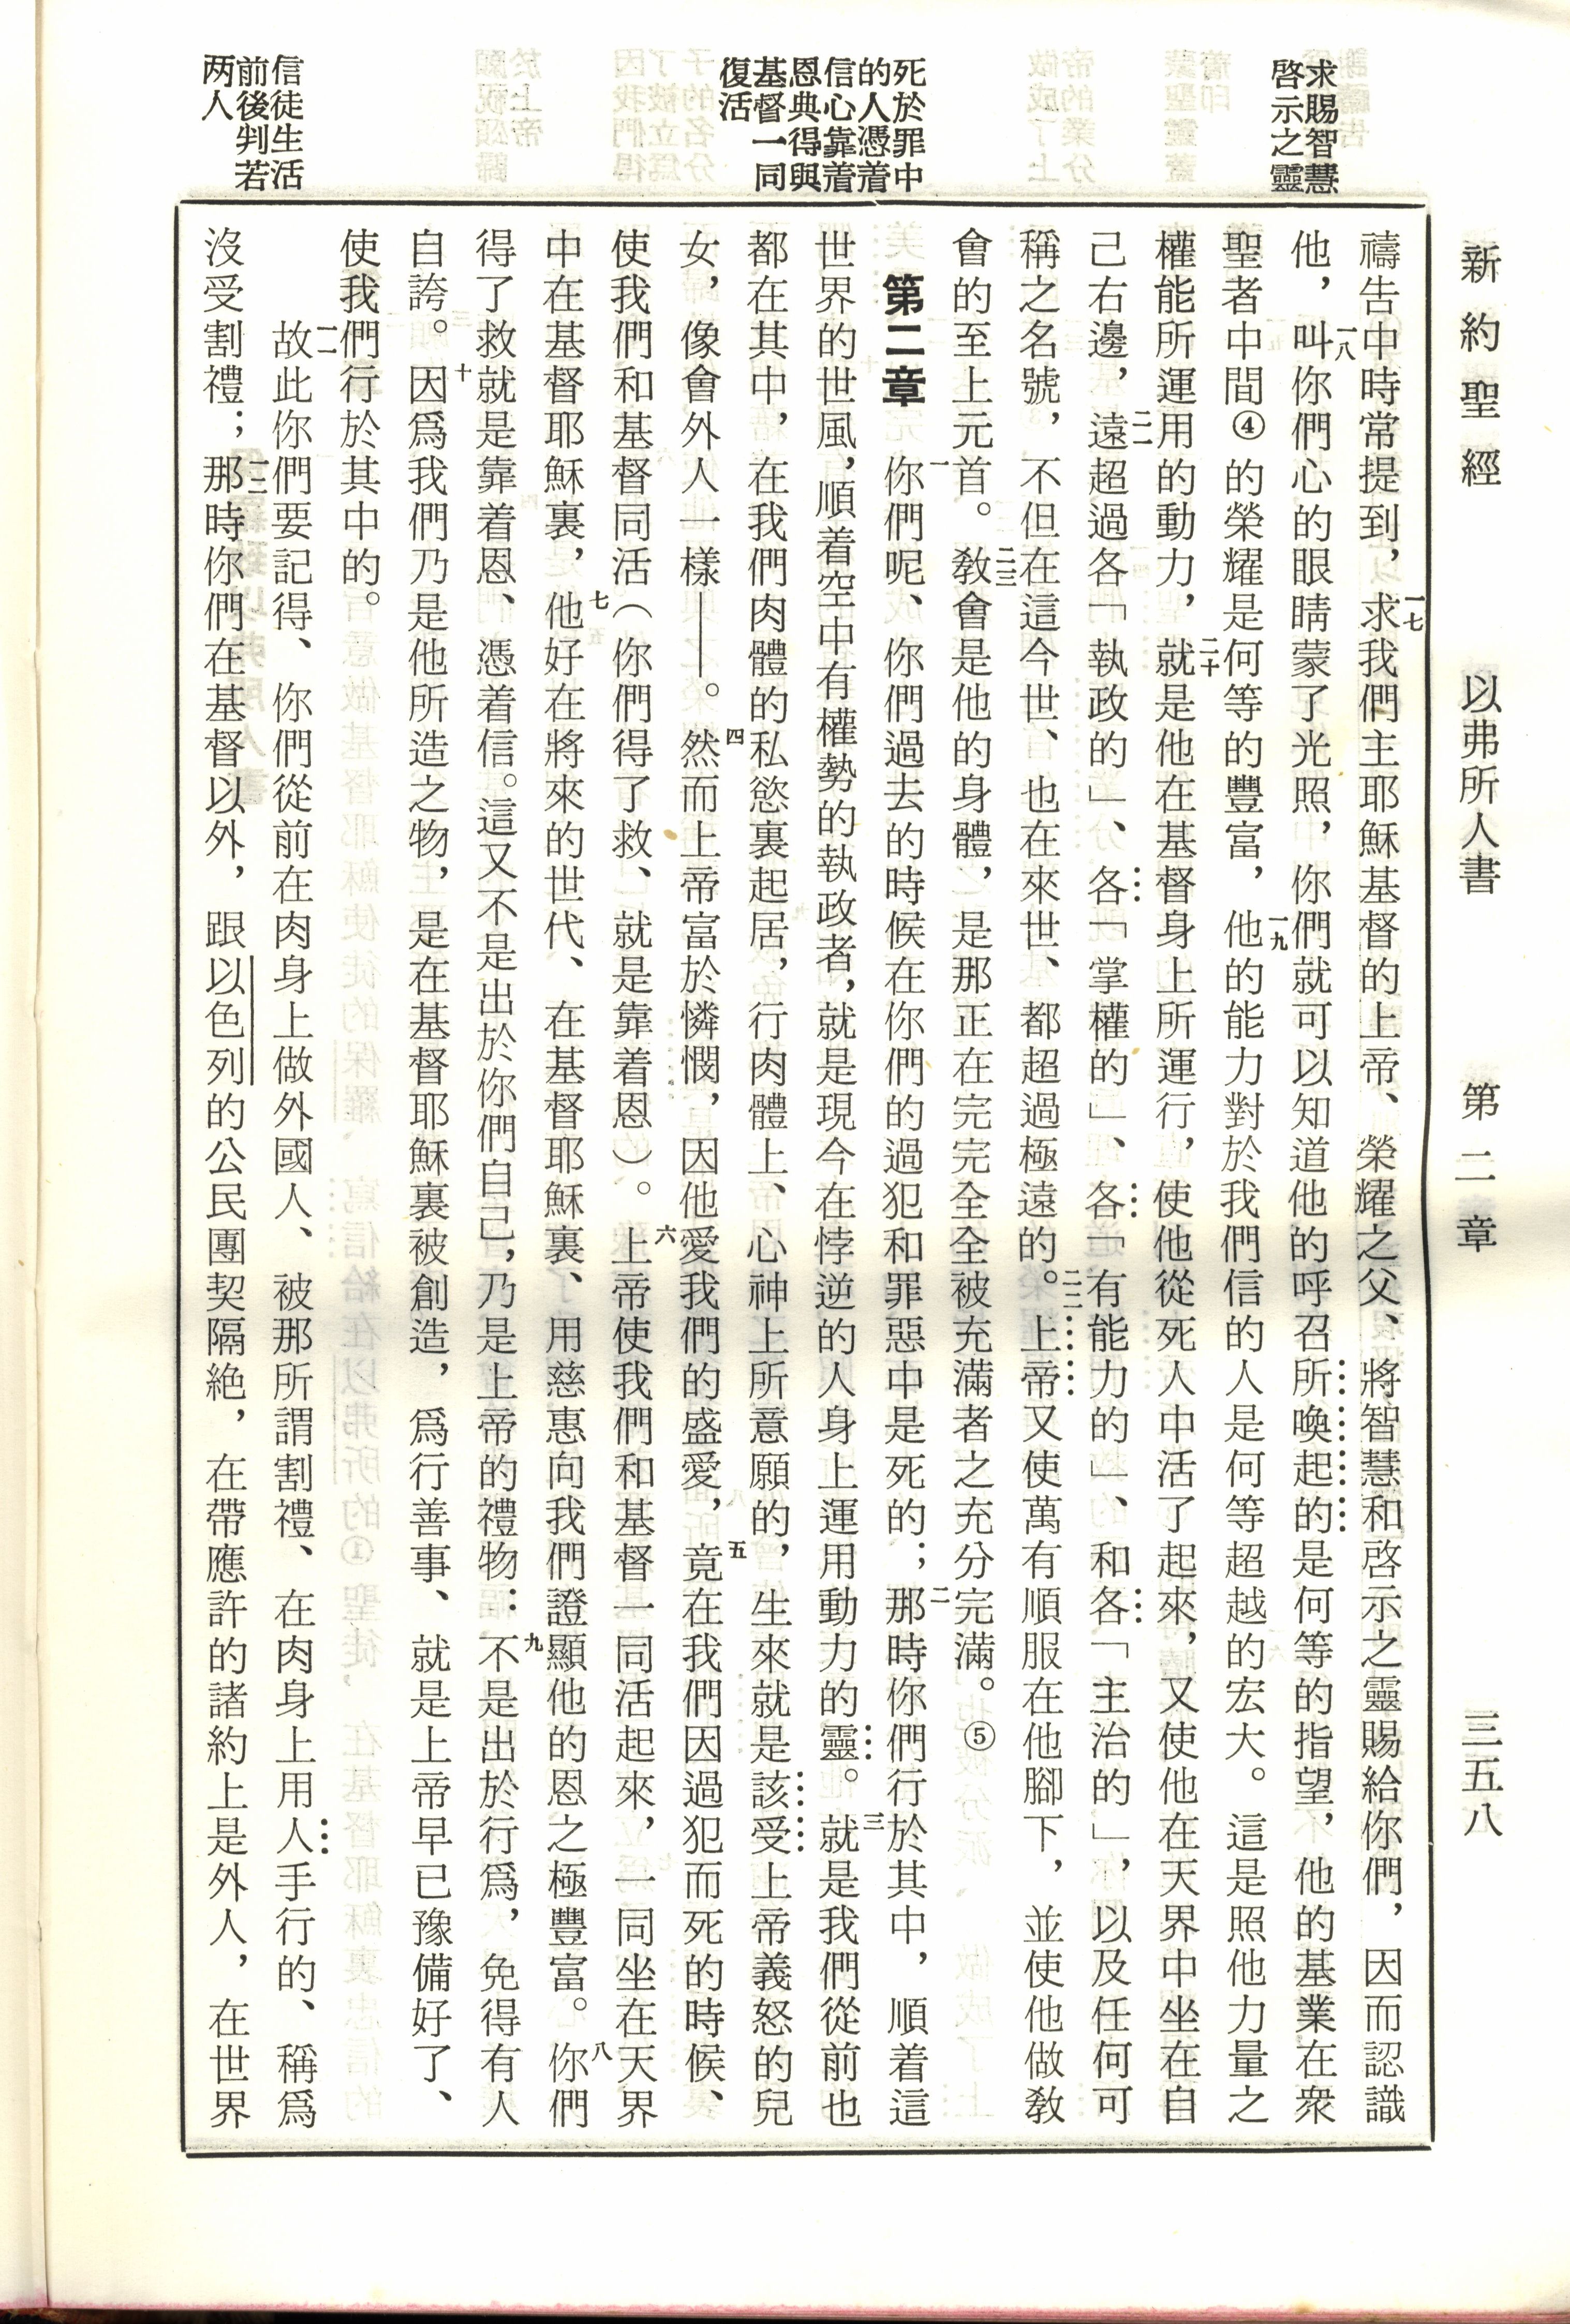 新約聖經　以弗所人書　第二章　三五八
求賜智慧
啓示之靈
死於罪中
的人憑着
信心靠着
恩典得與
基督一同
復活
信徒生活
前後判若
两人
禱告中時常提到，一七求我們主耶穌基督的上帝、榮耀之父、將智慧和啓示之靈賜給你們，因而認識
他，一八叫你們心的眼睛蒙了光照，你們就可以知道他的呼召所喚起的是何等的指望，他的基業在衆
聖者中間④的榮耀是何等的豐富，一九他的能力對於我們信的人是何等超越的宏大。這是照他力量之
權能所運用的動力，二十就是他在基督身上所運行，使他從死人中活了起來，又使他在天界中坐在自
己右邊，二一遠超過各「執政的」、各「掌權的」、各「有能力的」、和各「主治的」，以及任何可
稱之名號，不但在這今世、也在來世、都超過極遠的。二二上帝又使萬有順服在他腳下，並使他做教
會的至上元首。二三教會是他的身體，是那正在完完全全被充滿者之充分完滿。⑤
第二章　一你們呢、你們過去的時候在你們的過犯和罪惡中是死的；二那時你們行於其中，順着這
世界的世風，順着空中有權勢的執政者，就是現今在悖逆的人身上運用動力的靈。三就是我們從前也
都在其中，在我們肉體的私慾裏起居，行肉體上、心神上所意願的，生來就是該受上帝義怒的兒
女，像會外人一樣——。四然而上帝富於憐憫，因他愛我們的盛愛，五竟在我們因過犯而死的時候、
使我們和基督同活（你們得了救、就是靠着恩）。六上帝使我們和基督一同活起來，一同坐在天界
中在基督耶穌裏，七他好在將來的世代、在基督耶穌裏、用慈惠向我們證顯他的恩之極豐富。八你們
得了救就是靠着恩、憑着信。這又不是出於你們自己，乃是上帝的禮物：九不是出於行爲，免得有人
自誇。十因爲我們乃是他所造之物，是在基督耶穌裏被創造，爲行善事、就是上帝早已豫備好了、
使我們行於其中的。
一一故此你們要記得、你們從前在肉身上做外國人、被那所謂割禮、在肉身上用人手行的、稱爲
沒受割禮；一二那時你們在基督以外，跟以色列的公民團契隔絶，在帶應許的諸約上是外人，在世界